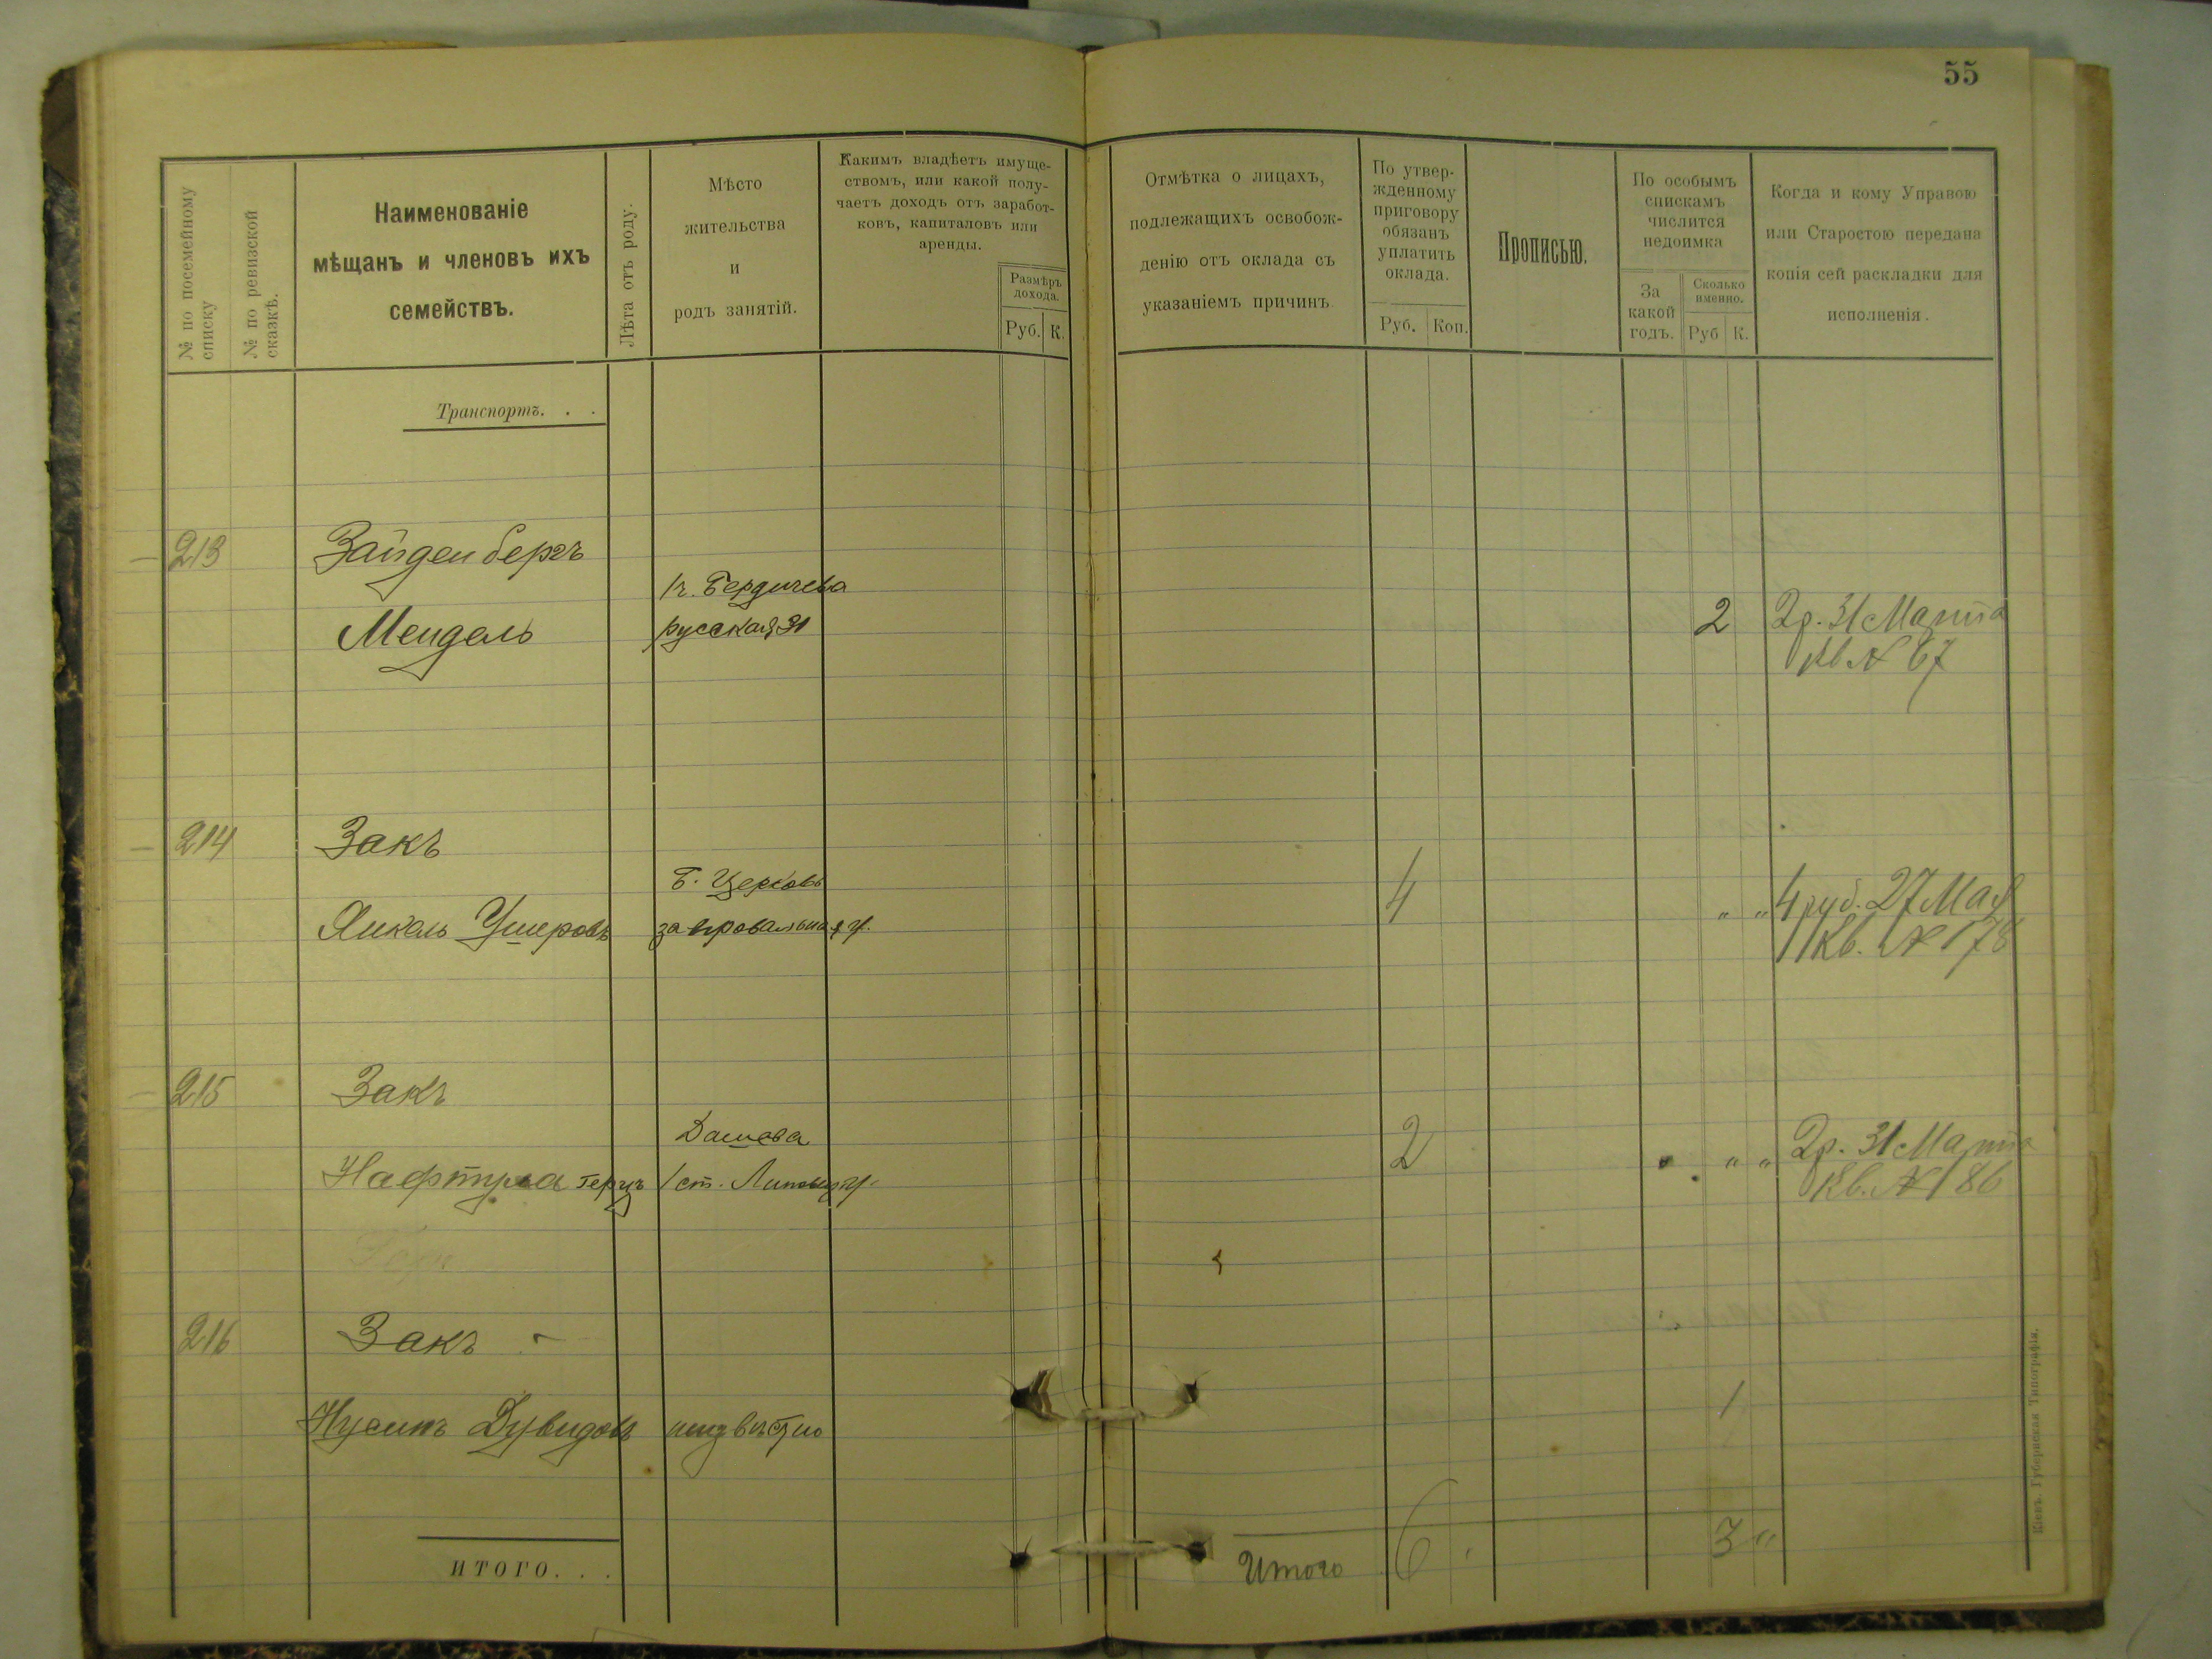 55
№ по посемейному списку
№ по ревизской сказкѣ.
Наименованіе
мѣщанъ и членовъ ихъ
семействъ.
Лѣта отъ роду.
Мѣсто
жительства
и
родъ занятій.
Какимъ владѣетъ имуще-
ствомъ, или какой полу-
чаетъ доходъ отъ заработ-
ковъ, капиталовъ или
аренды.
Размѣръ
дохода.
Руб. К.
Отмѣтка о лицахъ,
подлежащихъ освобож-
денію отъ оклада съ
указаніемъ причинъ
По утвер-
жденному
приговору
обязанъ
уплатить
оклада.
Руб. Коп.
Прописью.
По особымъ
спискамъ
числится
недоимка
За
какой
годъ.
Сколько
именно.
Руб К.
Когда и кому Управою
или Старостою передана
копія сей раскладки для
исполненія.
Транспортъ. . .
213 Зайденбергъ
г. Бердичева
Мендель русская 31 2 2р. 31 Марта
Кв № 67
214 Закъ
Б. Церковь 4 " " 4 руб. 27 Мая
Янкель Ушеровъ Кв. № 178
215 Закъ
Дашева 2 " " 2р. 31 Марта
Нафтула Герцъ /ст. Кв. № 186
216 Закъ
1
Нусинъ Дувидовъ неизвѣстно
ИТОГО. . . Итого 6 3 "
Кіевъ. Губернская Типографія.